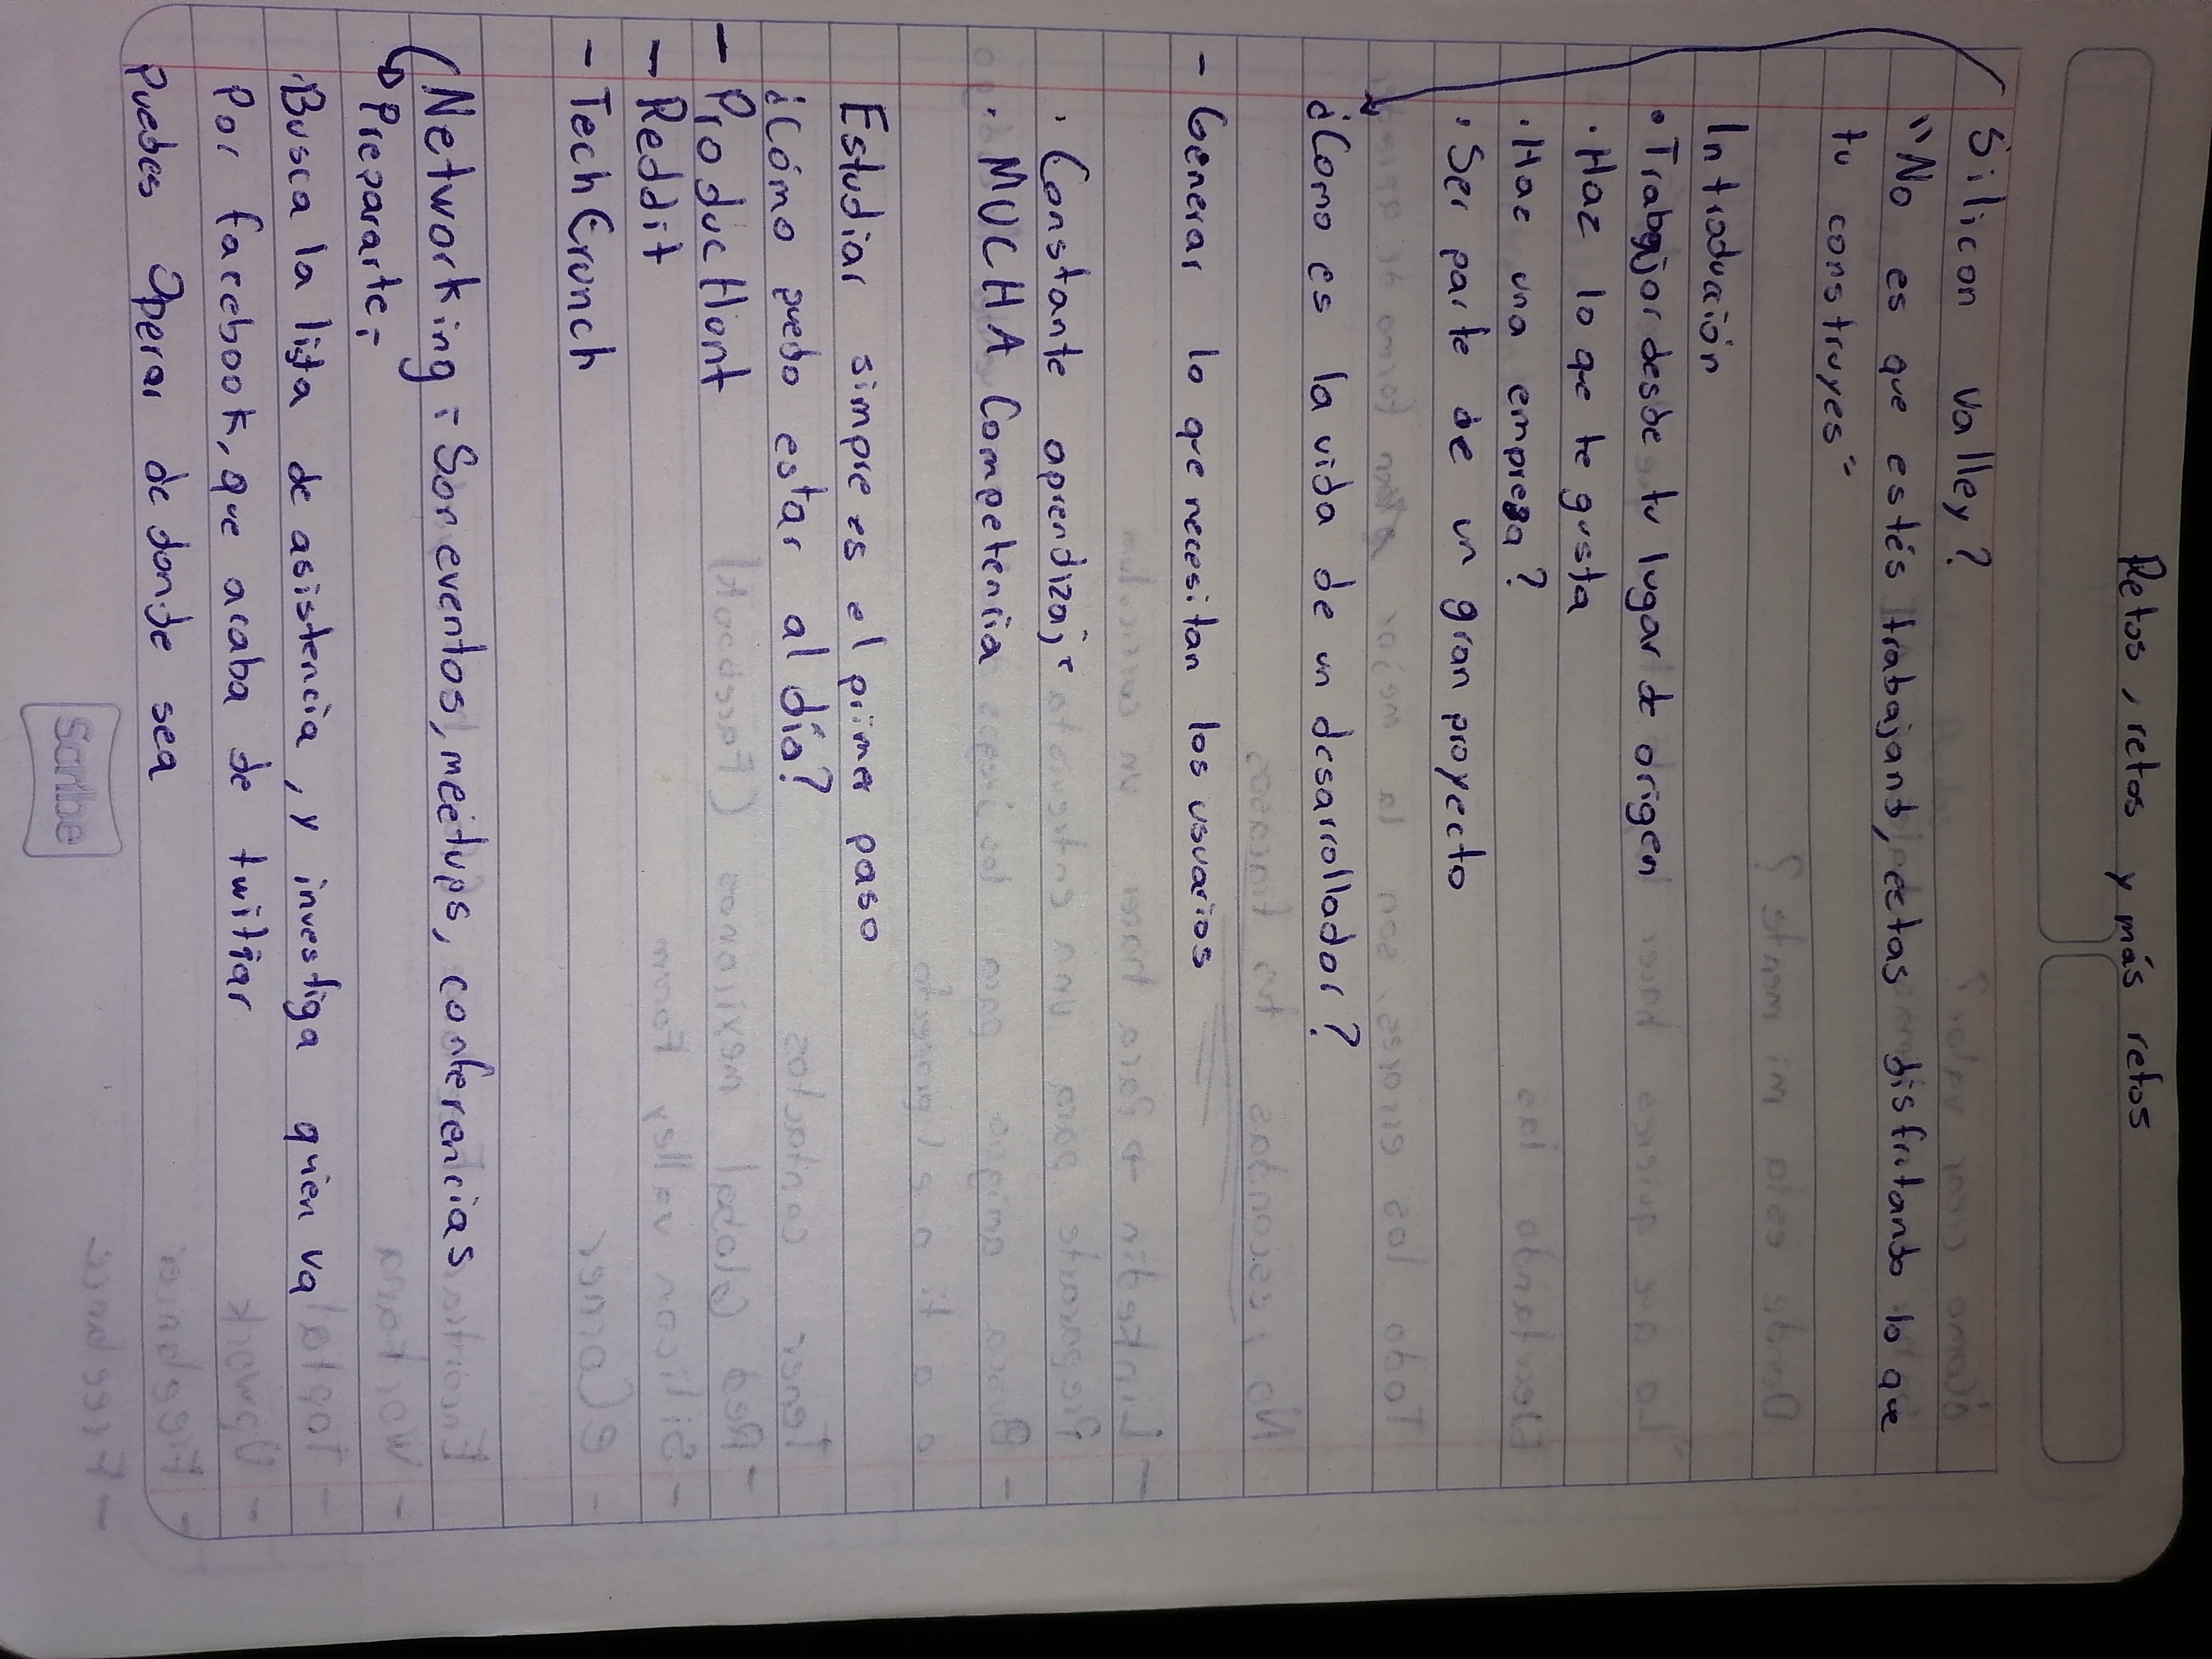 Retos, retos y más retos
Silicon valley?
"No es que estés trabajando, estas disfrutando lo que
tu construyes"
Introducción
• Trabajar desde tu lugar de origen
• Haz lo que te gusta
• Haz una empresa?
• Ser parte de un gran proyecto
¿Como es la vida de un desarrollador?
- Generar lo que necesitan los usuarios
• Constante aprendizaje
• MUCHA Competencia
Estudiar simpre es el primer paso
¿Cómo puedo estar al día?
- ProducHunt
- Reddit
- TechCrunch
Networking: Son eventos, meetups, conferencias
Prepararte:
Busca la lista de asistencia, y investiga quien va
Por facebook, que acaba de twittiar
Puedes Operar de donde sea
Scribe